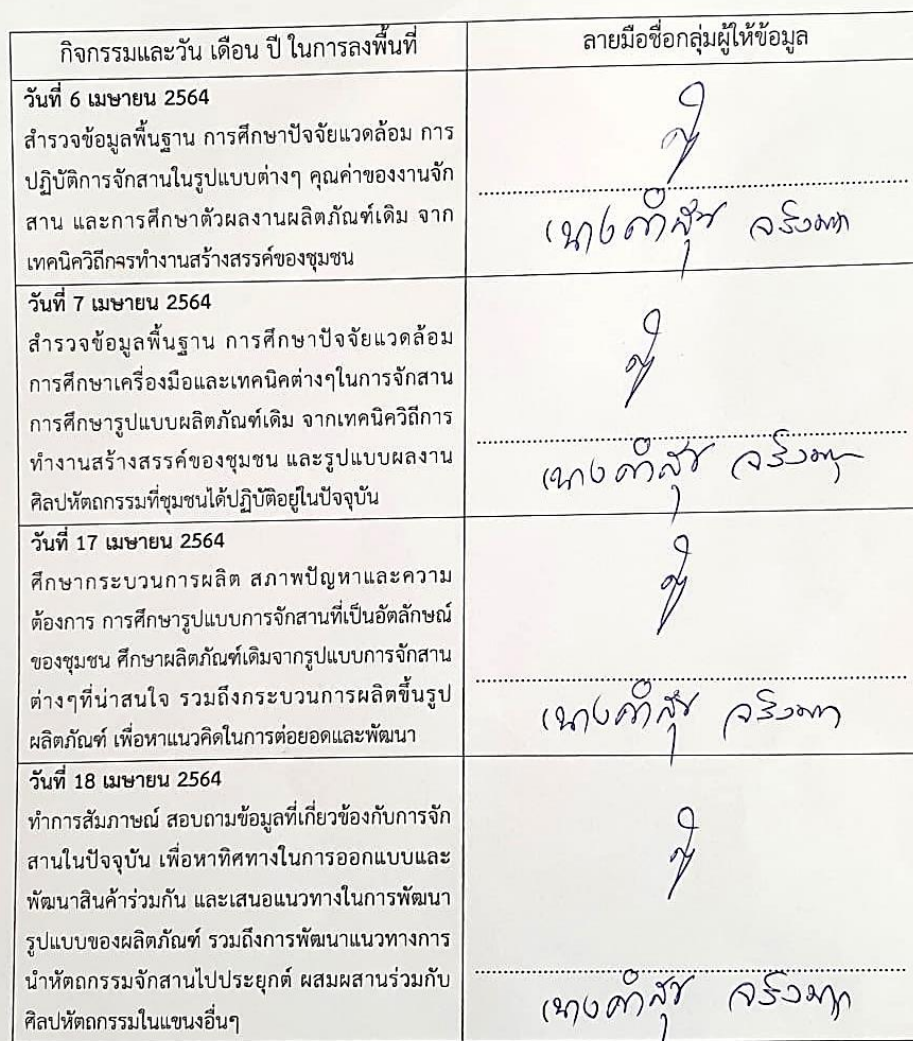 กิจกรรมและวัน เดือน ปี ในการลงพื้นที่
ลายมือชื่อกลุ่มผู้ให้ข้อมูล
วันที่ 6 เมษายน 2564
สำรวจข้อมูลพื้นฐาน การศึกษาปัจจัยแวดล้อม การ
ปฏิบัติการจักสานในรูปแบบต่างๆ คุณค่าของงานจัก
สาน และการศึกษาตัวผลงานผลิตภัณฑ์เดิม จาก
เทคนิควิถีกจรทำงานสร้างสรรค์ของชุมชน
นางคำสุข
วันที่ 7 เมษายน 2564
สำรวจข้อมูลพื้นฐาน การศึกษาปัจจัยแวดล้อม
การศึกษาเครื่องมือและเทคนิคต่างๆในการจักสาน
การศึกษารูปแบบผลิตภัณฑ์เดิม จากเทคนิควิถีการ
ทำงานสร้างสรรค์ของชุมชน และรูปแบบผลงาน
ศิลปหัตถกรรมที่ชุมชนได้ปฏิบัติอยู่ในปัจจุบัน
นางคำสุข
วันที่ 17 เมษายน 2564
ศึกษากระบวนการผลิต สภาพปัญหาและความ
ต้องการ การศึกษารูปแบบการจักสานที่เป็นอัตลักษณ์
ของชุมชน ศึกษาผลิตภัณฑ์เดิมจากรูปแบบการจักสาน
ต่างๆที่น่าสนใจ รวมถึงกระบวนการผลิตขึ้นรูป
ผลิตภัณฑ์ เพื่อหาแนวคิดในการต่อยอดและพัฒนา
นางคำสุข
วันที่ 18 เมษายน 2564
ทำการสัมภาษณ์ สอบถามข้อมูลที่เกี่ยวข้องกับการจัก
สานในปัจจุบัน เพื่อหาทิศทางในการออกแบบและ
พัฒนาสินค้าร่วมกัน และเสนอแนวทางในการพัฒนา
รูปแบบของผลิตภัณฑ์ รวมถึงการพัฒนาแนวทางการ
นำหัตถกรรมจักสานไปประยุกต์ ผสมผสานร่วมกับ
ศิลปหัตถกรรมในแขนงอื่นๆ
นางคำสุข